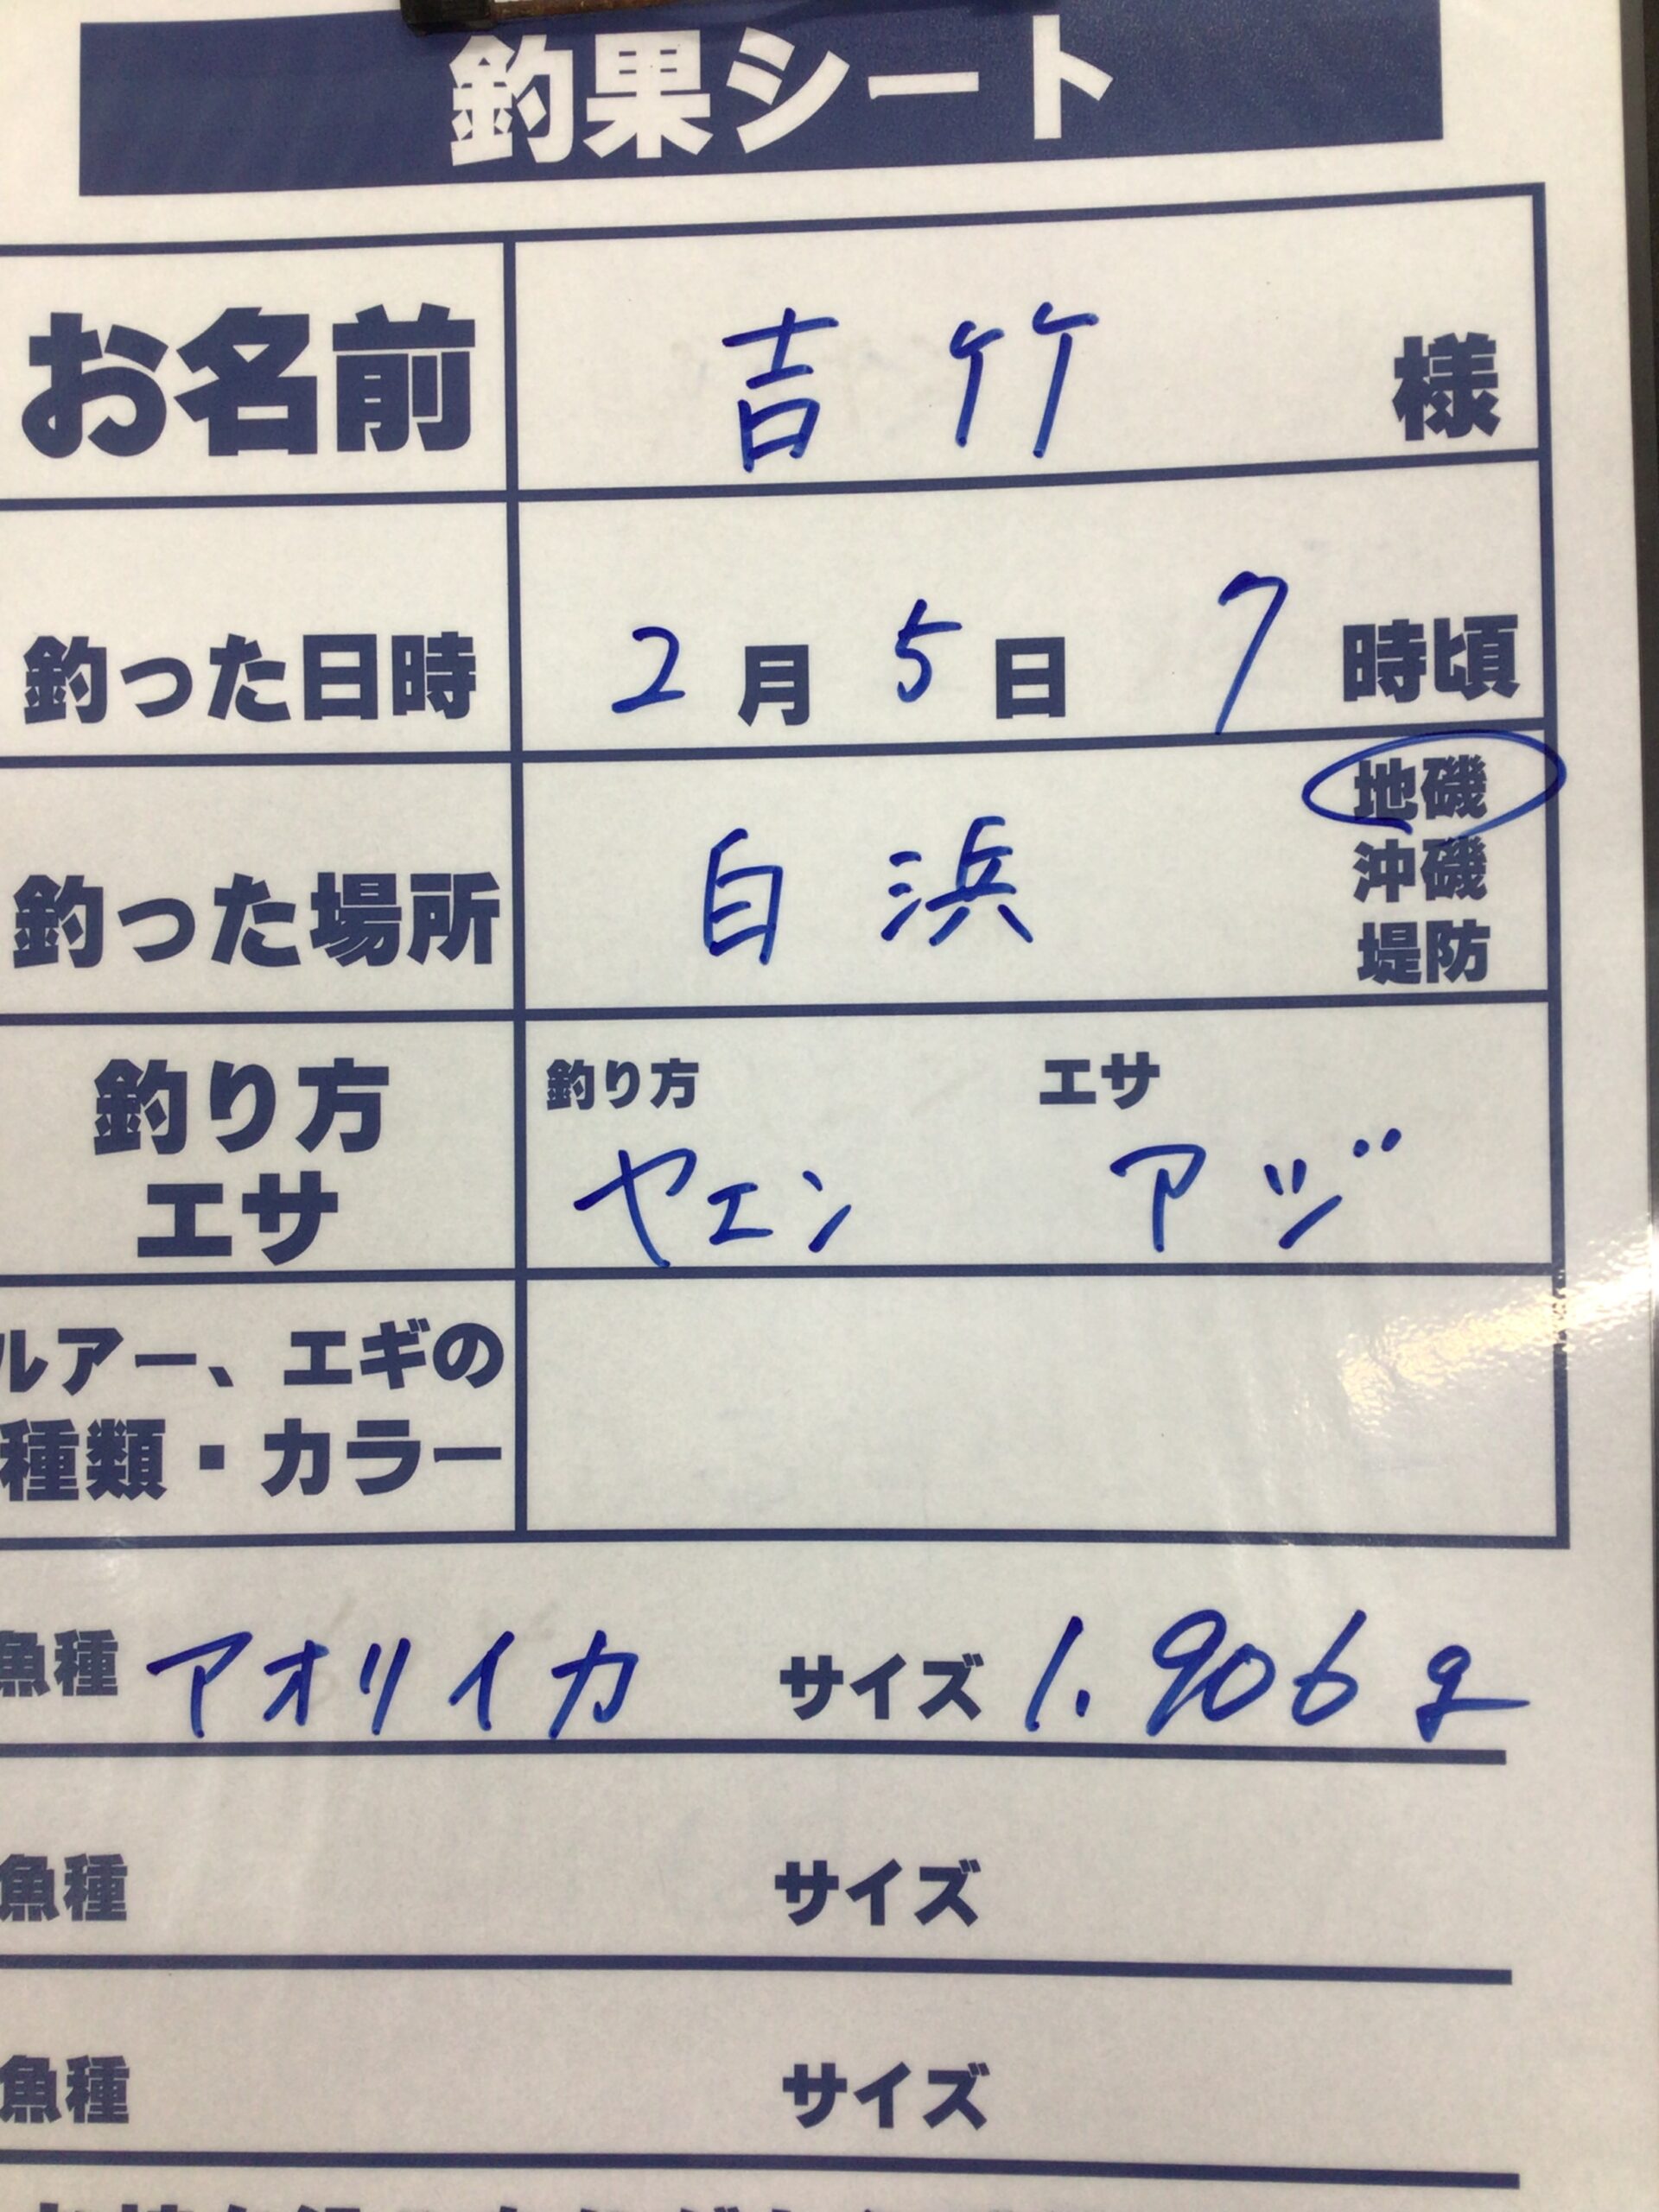 釣果シート
お名前 吉竹 様
釣った日時 2月5日 7時頃
地磯
釣った場所 白浜 沖磯
堤防
釣り方 エサ
釣り方
エサ ヤエン アジ
ルアー、エギの
種類・カラー
魚種 アオリイカ サイズ 1.906g
魚種 サイズ
魚種 サイズ